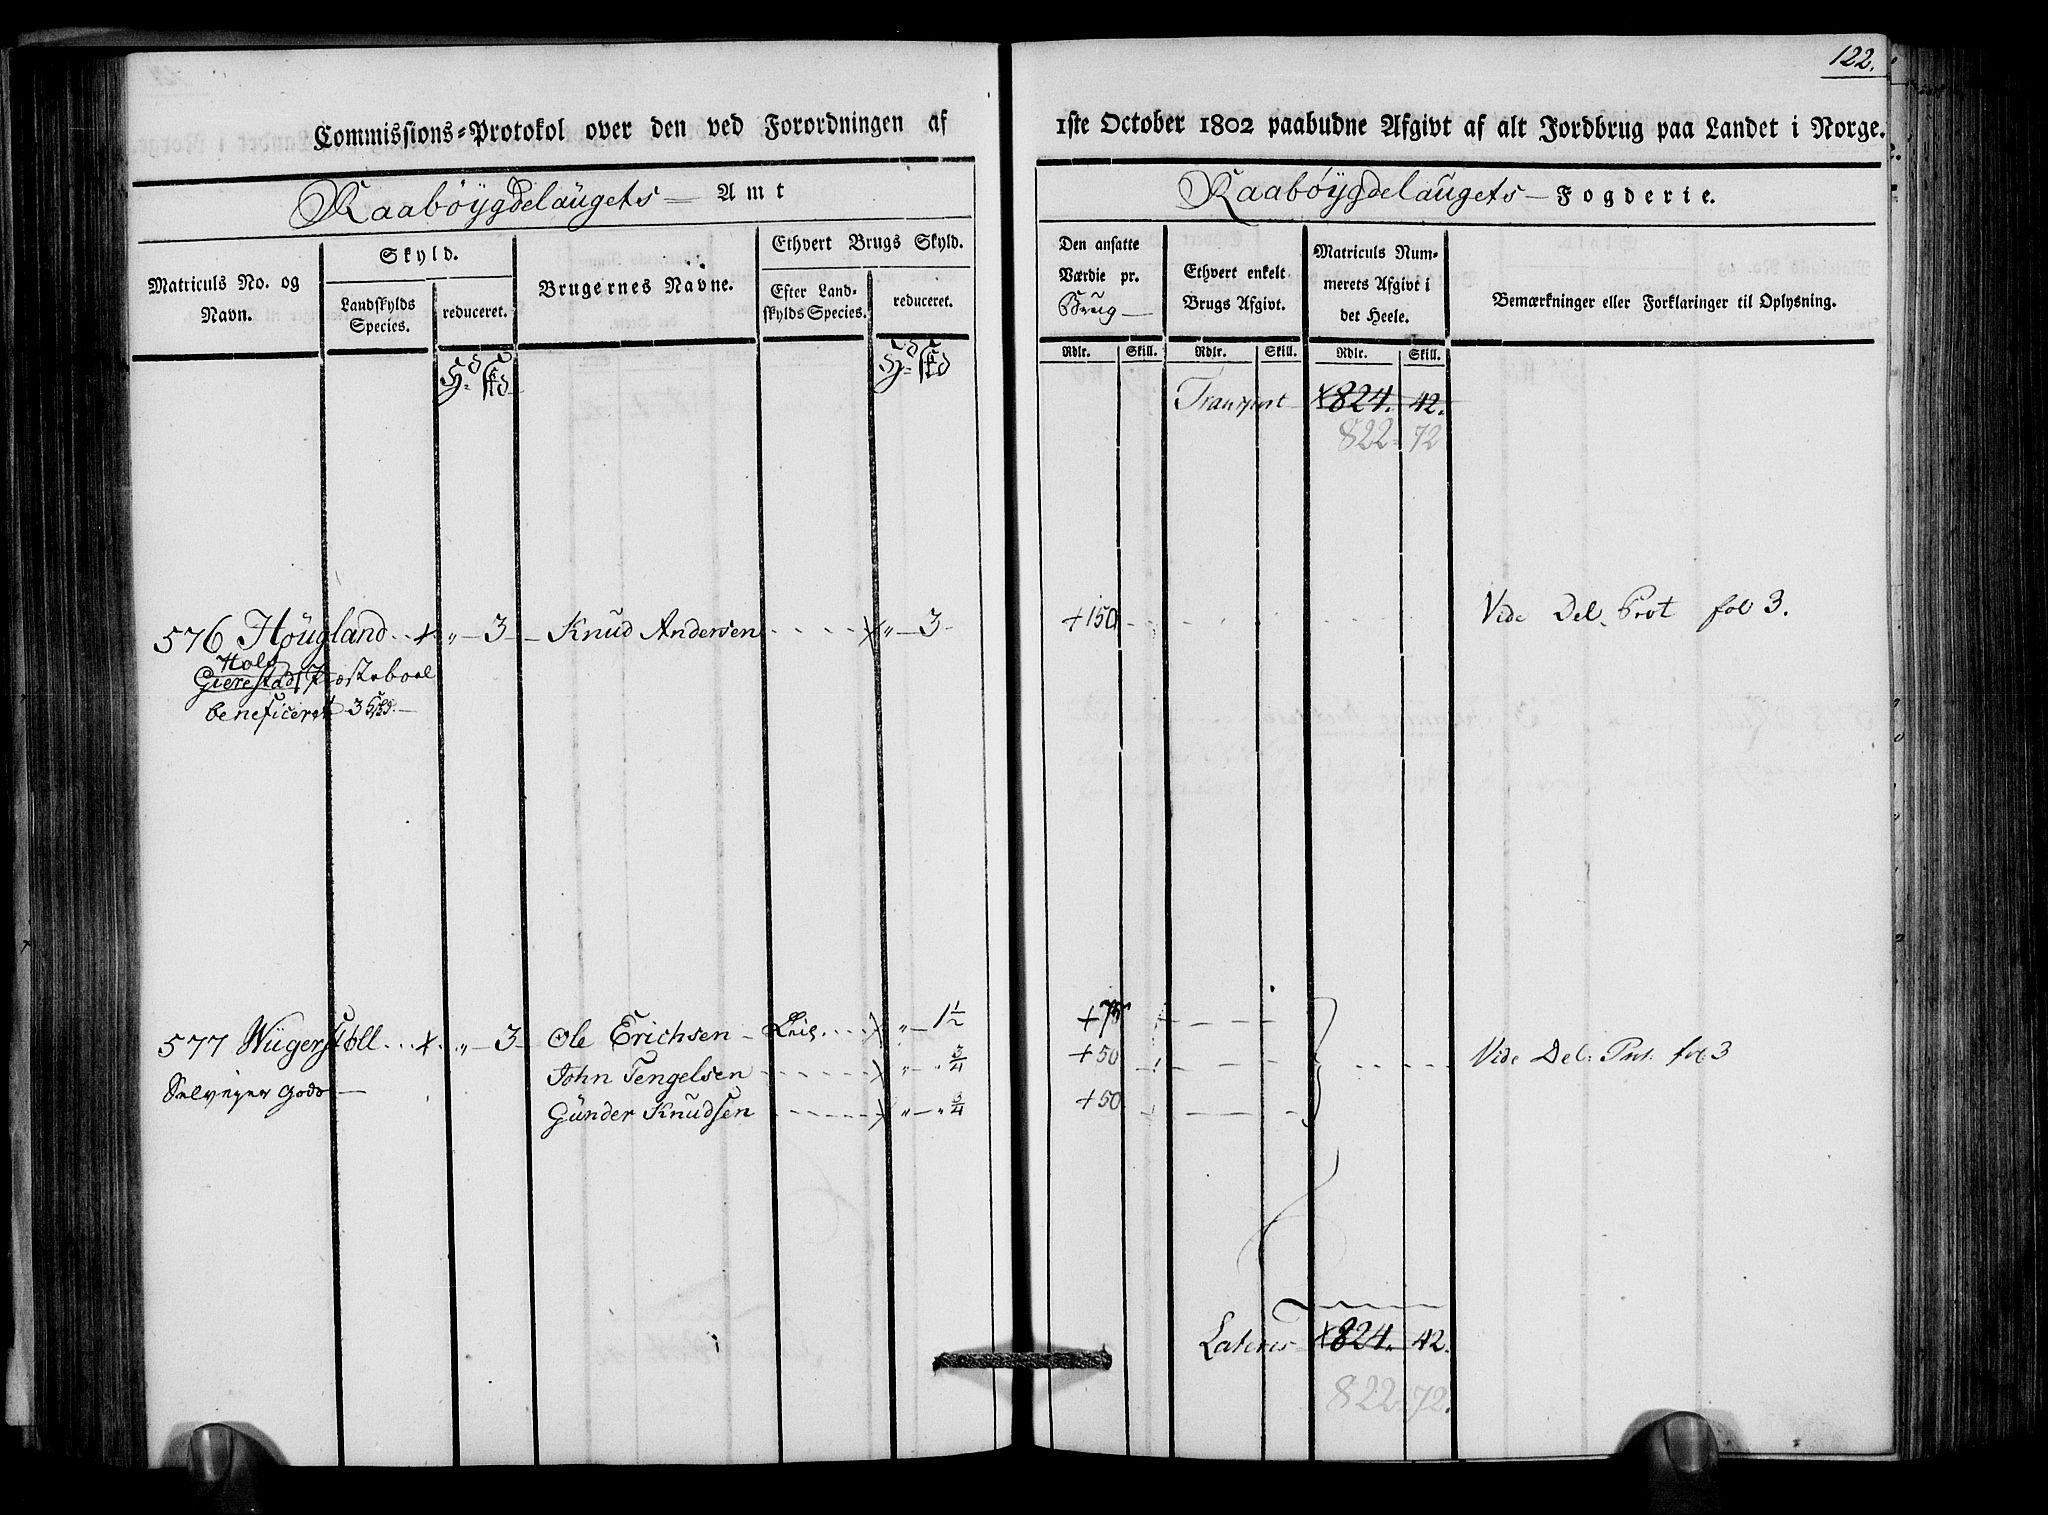 122.
Commissions-Protokol over den ved Forordningen af 1ste October 1802 paabudne Afgivt af alt Jordbrug paa Landet i Norge.
Raabÿgdelaugets Amt
Raabÿgdelaugets Fogderie.
Matriculs No. og Navn.
Skyld.
Landskylds Species.
reduceret.
Brugernes Navne.
Ethvert Brugs Skyld.
Efter Landskylds Species.
reduceret.
Den ansatte Værdie pr. Brug
Ethvert enkelt Brugs Afgivt.
Matriculs Nummerets Afgivt i det Heele.
Bemærkninger eller Forklaringer til Oplysning.
Rdlr. Skill. Rdlr. Skill. Rdlr. Skill.
Transport X824. 42.
822 72
576 Høügland + „ 3 Knud Andersen X „ 3 +150 Vide Del. Prot fol 3.
Holt
Gierestad Præsteboel
beneficeret 3
577 Wügerstøll + „ 3 Ole Erichsen Leil. X „ 1 1/2 +75 Vide Del: Prot. fol 3
John Tengelsen X „ „ 3/4 +50
Selveyer Gods
Günder Knudsen X „ „ 3/4 +50
Lateris X824. 42.
822 72.